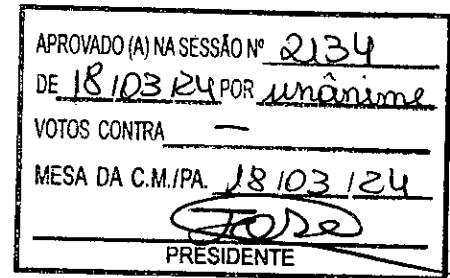 APROVADO (A) NA SESSÃO Nº 2134
DE 18/03/24 POR unânime
VOTOS CONTRA —
MESA DA C.M./PA. 18/03/24
PRESIDENTE